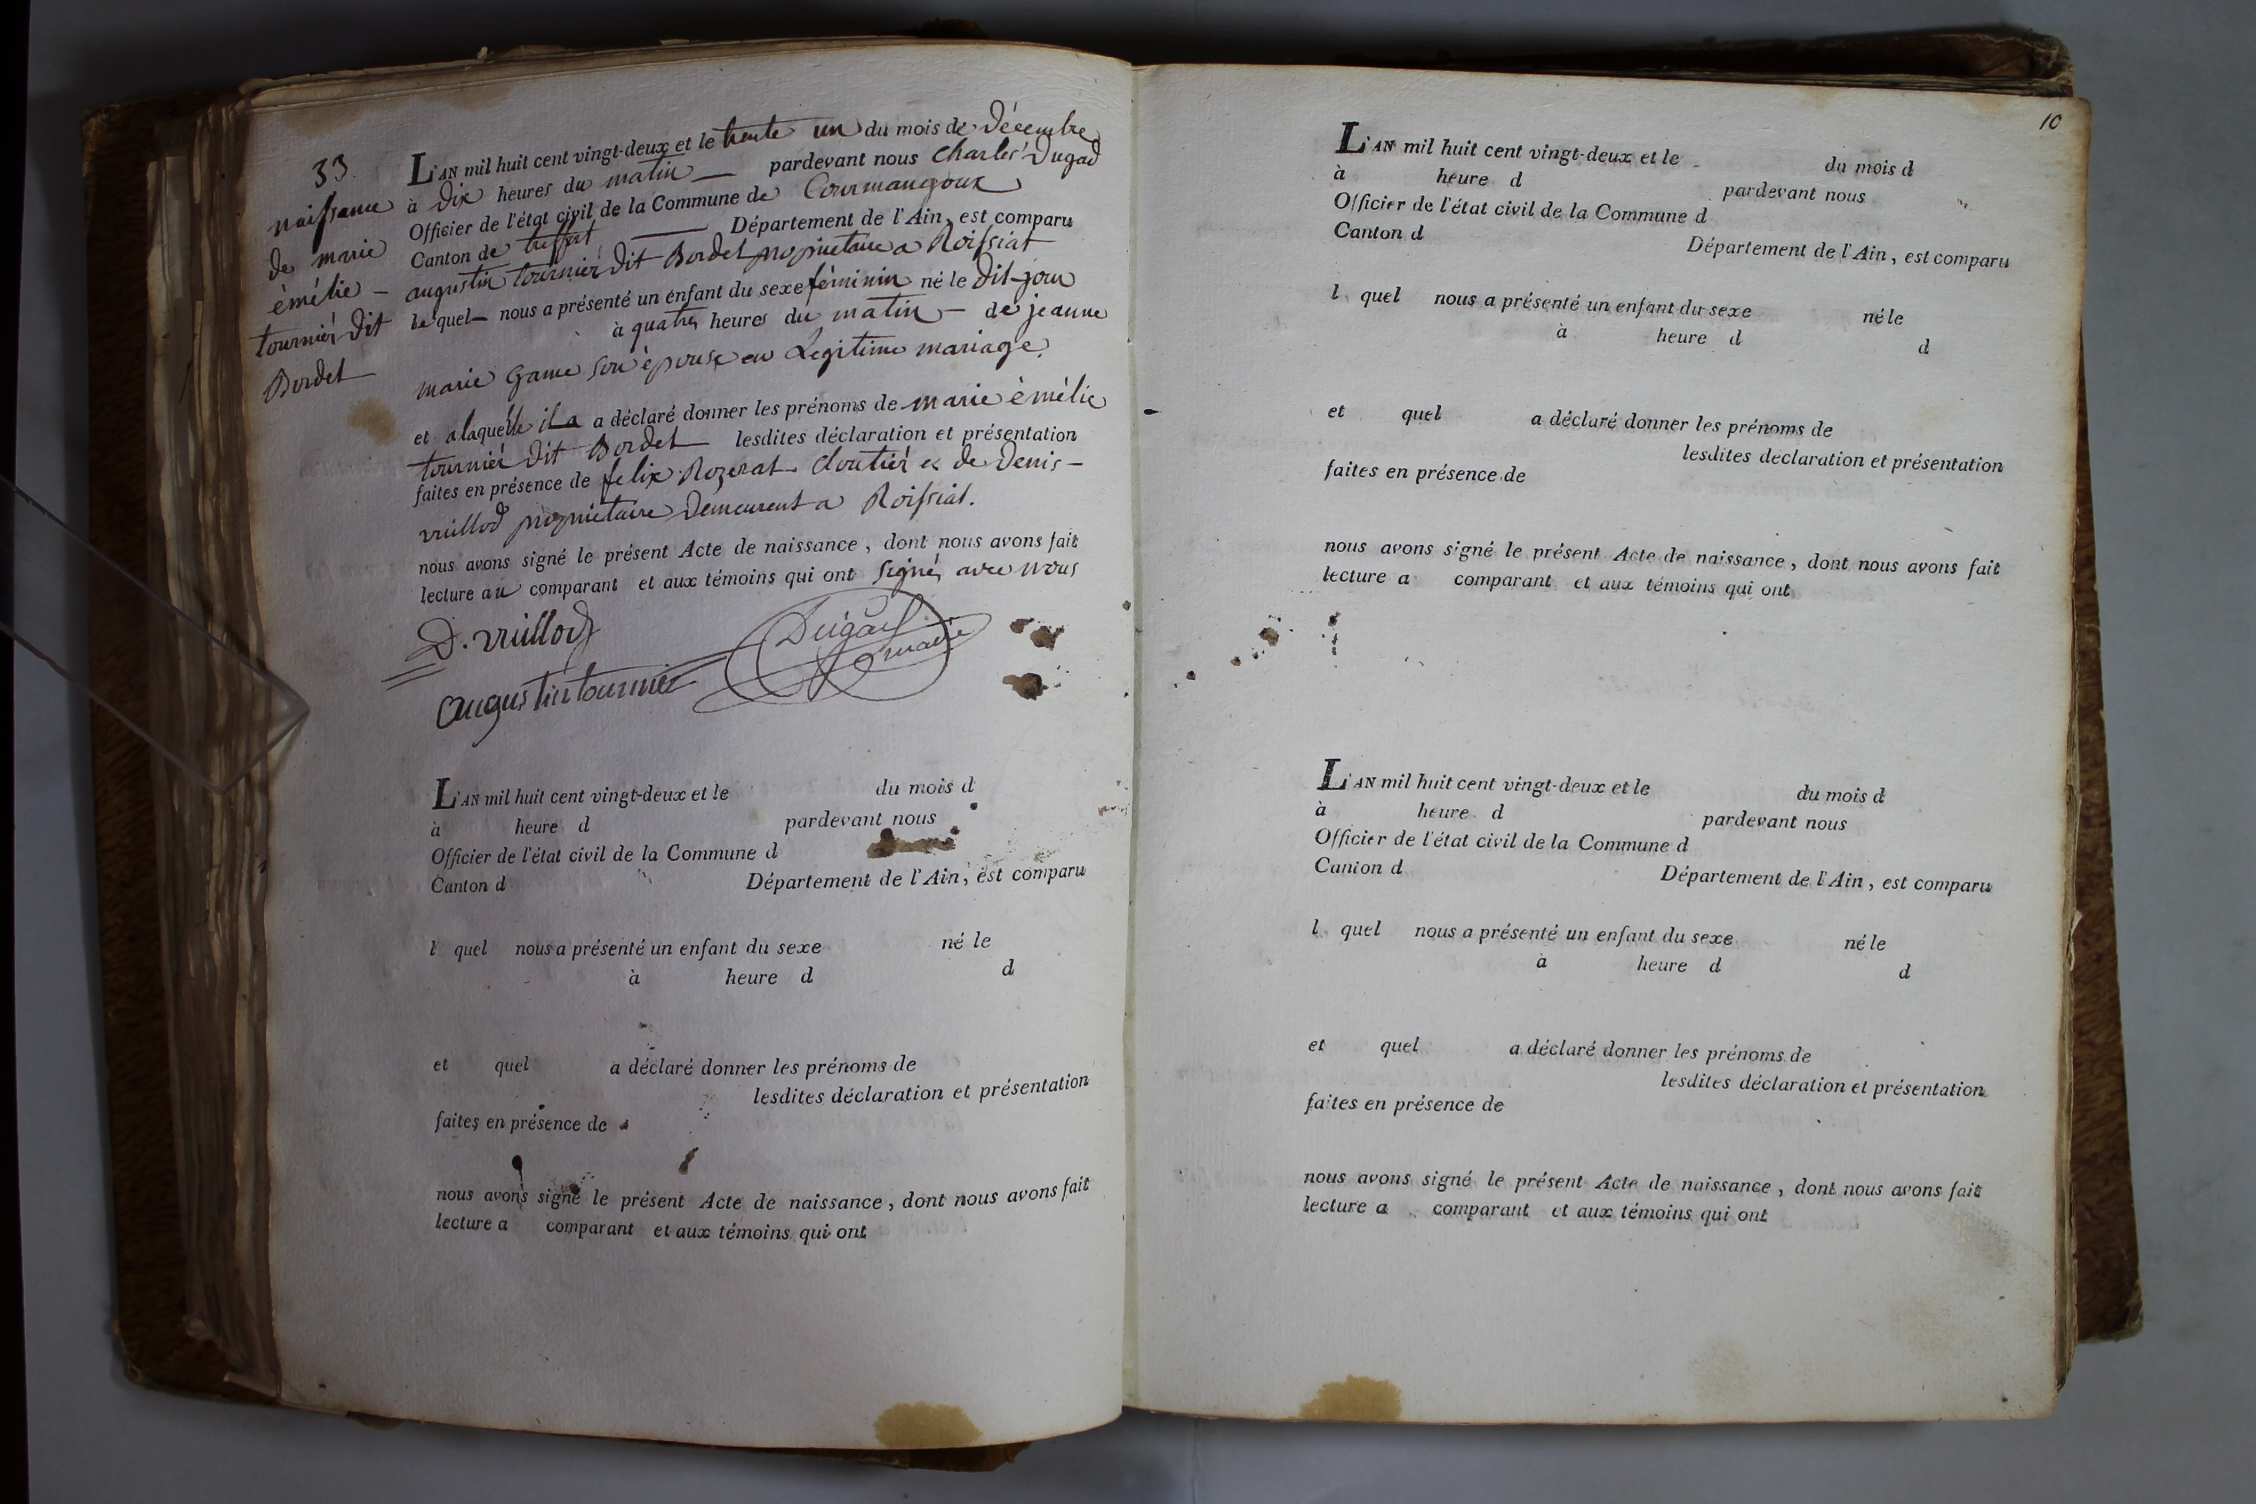 33
naissance
de marie
émélie –
tournier dit
Bordet
L'AN mil huit cent vingt-deux et le trente un du mois de décembre
à dix heures du matin — pardevant nous Charles Dugad
Officier de l'état civil de la Commune de Courmangoux
Canton de treffort — Département de l'Ain, est comparu
augustin tournier dit Bordet propriétaire a Roissiat
lequel nous a présenté un enfant du sexe féminin né le dit jour
à quatres heures du matin – de jeanne
marie Game son épouse en Legitime mariage.
et a laquelle il a a déclaré donner les prénoms de marie émélie
tournier dit Bordet lesdites déclaration et présentation
faites en présence de felix Rozerat cloutier et de Denis –
vuillod propriétaire Demeurent a Roissiat.
nous avons signé le présent Acte de naissance, dont nous avons fait
lecture au comparant et aux témoins qui ont signé, avec nous
D. vuillod
Dugad
maire
augustin tournier
L'AN mil huit cent vingt-deux et le du mois d
à heure d pardevant nous
Officier de l'état civil de la Commune d
Canton d Département de l'Ain, est comparu
l quel nous a présenté un enfant du sexe né le
à heure d d
et quel a déclaré donner les prénoms de
lesdites déclaration et présentation
faites en présence de
nous avons signé le présent Acte de naissance, dont nous avons fait
lecture a comparant et aux témoins qui ont
10
L'AN mil huit cent vingt-deux et le du mois d
à heure d pardevant nous
Officier de l'état civil de la Commune d
Canton d Département de l'Ain, est comparu
l quel nous a présenté un enfant du sexe né le
à heure d d
et quel a déclaré donner les prénoms de
lesdites declaration et présentation
faites en présence de
nous avons signé le présent Acte de naissance, dont nous avons fait
lecture a comparant et aux témoins qui ont
L'AN mil huit cent vingt-deux et le du mois d
à heure d pardevant nous
Officier de l'état civil de la Commune d
Canton d Département de l'Ain, est comparu
l quel nous a présenté un enfant du sexe né le
à heure d d
et quel a déclaré donner les prénoms de
lesdites déclaration et présentation
faites en présence de
nous avons signé le présent Acte de naissance, dont nous avons fait
lecture a comparant et aux témoins qui ont